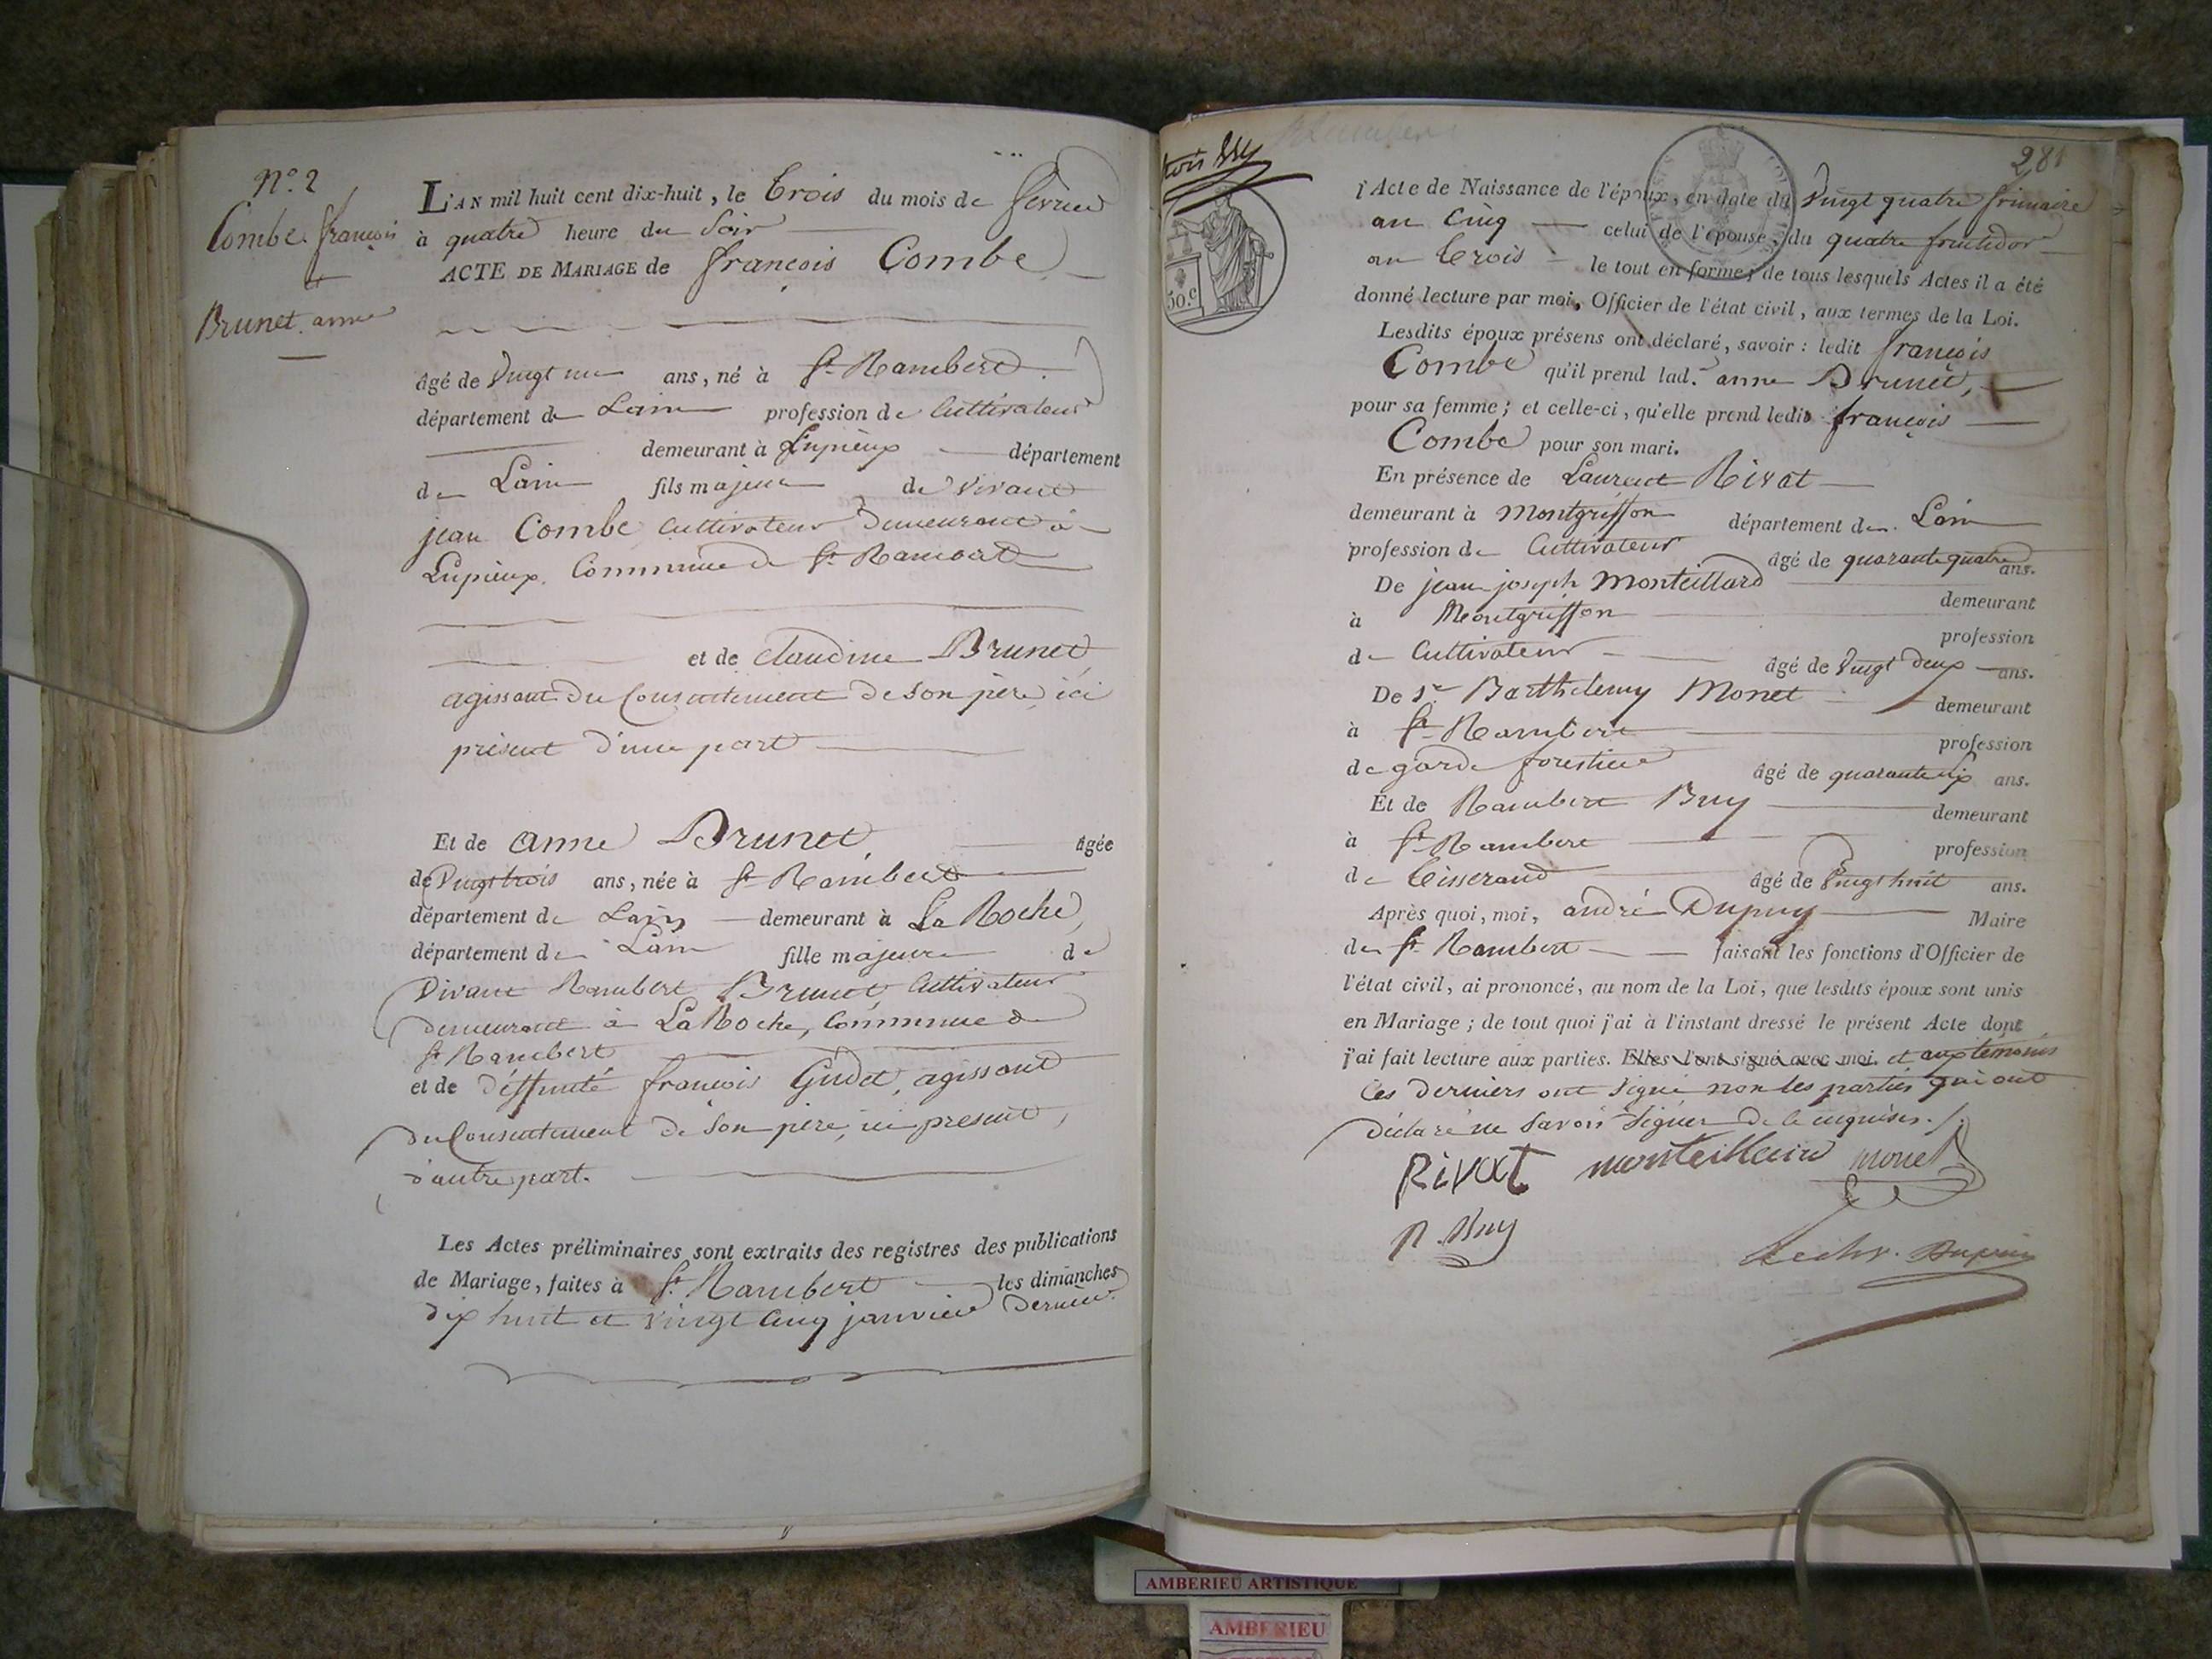 N.° 2
Combe françois
&
Brunet anne
L'AN mil huit cent dix-huit, le trois du mois de fevrier
à quatre heure du soir
ACTE DE MARIAGE de françois Combe
âgé de vingt un ans, né à St Rambert
département de Lain profession de Cultivateur
demeurant à Lupieux département
de Lain fils majeur de vivant
jean Combe Cultivateur demeurant à
Lupieux, Commune de St Rambert
et de claudine Brunet
agissant du Consentement de son père ici
présent d'une part
Et de anne Brunet âgée
de vingt trois ans, née à St Rambert
département de Lain demeurant à La Roche,
département de Lain fille majeure de
vivant Rambert Brunet, Cultivateur
demeurant à La Roche, Commune de
St Rambert
et de deffunte françois Gudet, agissant
du Consentement de son père, ici present,
d'autre part.
Les Actes préliminaires sont extraits des registres des publications
de Mariage, faites à St Rambert les dimanches
dix huit et vingt cinq janvier dernier
281
50.c
l'Acte de Naissance de l'époux, en date du vingt quatre frimaire
an cinq celui de l'épouse, du quatre fructidor
an trois le tout en forme; de tous lesquels Actes il a été
donné lecture par moi, Officier de l'état civil, aux termes de la Loi.
Lesdits époux présens ont déclaré, savoir: ledit françois
Combe qu'il prend lad. anne Brunet,
pour sa femme; et celle-ci, qu'elle prend ledit françois
Combe pour son mari.
En présence de Laurent Rivat
demeurant à Montgriffon département de Lain
profession de Cultivateur âgé de quarante quatre ans.
De jean joseph Monteillard demeurant
à Montgriffon profession
de Cultivateur âgé de vingt deux ans.
De Sr Barthelemy Monet demeurant
à St Rambert profession
de garde forestier âgé de quarante six ans.
Et de Rambert Buy demeurant
à St Rambert profession
de tisserand âgé de vingt huit ans.
Après quoi, moi, andré Dupuy Maire
de St Rambert faisant les fonctions d'Officier de
l'état civil, ai prononcé, au nom de la Loi, que lesdits époux sont unis
en Mariage; de tout quoi j'ai à l'instant dressé le présent Acte dont
j'ai fait lecture aux parties. Elles l'ont signé avec moi. et aux temoins
Ces derniers ont signé non les parties qui ont
déclaré ne savoir signer de ce enquises.
Rivat monteillard monet
R. Buy
Dupuy
AMBERIEU ARTISTIQUE
AMBERIEU